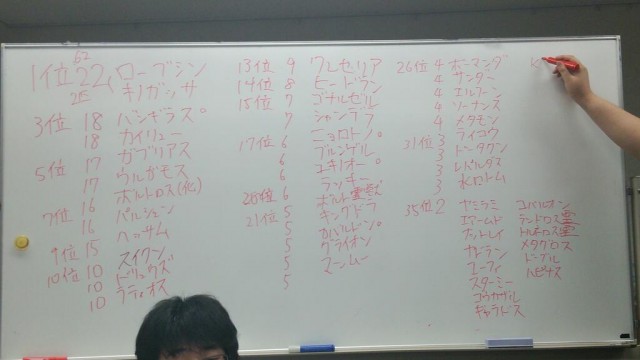 62
1位 22 ローブシン
22 キノガッサ
3位 18 バンギラス
18 カイリュー
5位 17 ガブリアス
17 ウルガモス
7位 16 ボルトロス(化)
16 パルシェン
9位 15 ハッサム
10位 10 スイクン
10 ドリュウズ
10 ラティオス
13位 9 クレセリア
14位 8 ヒードラン
15位 7 ゴチルゼル
7 シャンデラ
17位 6 ニョロトノ
6 ブルンゲル
6 ユキノオー
6 ラッキー
ボルト霊獣
21位 5 キングドラ
5 カバルドン
5 グライオン
5 マンムー
26位 4 ボーマンダ
4 サンダー
4 エルフーン
4 ソーナンス
4 メタモン
31位 3 ライコウ
3 トドグウ
3 レパルダス
3 水ロトム
35位 2 ヤミラミ
エアームド
ナットレイ
エーフィ
スターミー
ゴウカザル
ギャラドス
コバルオン
ランドロス霊
トルネロス霊
メタグロス
ドーブル
ハピナス